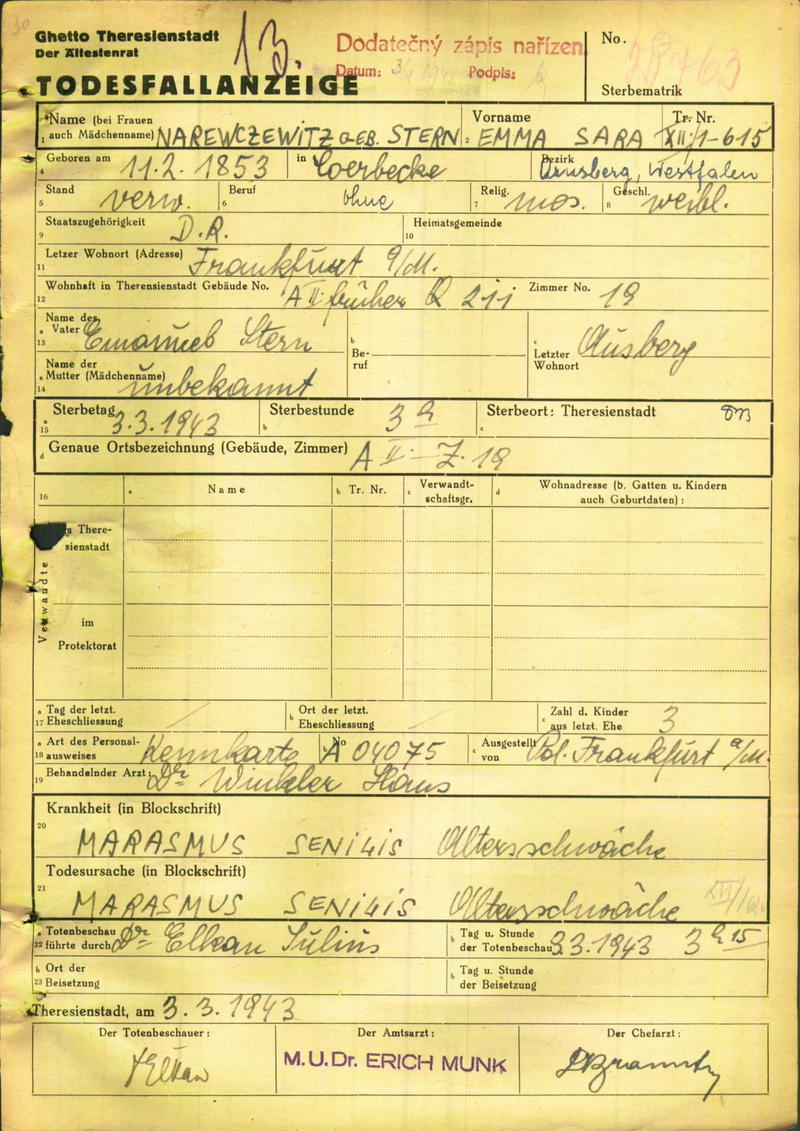 Ghetto Theresienstadt
Der Ältestenrat
13.
Dodatečný zápis nařízen
Datum: Podpis:
No.
TODESFALLANZEIGE
Sterbematrik
Name (bei Frauen Vorname Tr. Nr.
1 auch Mädchenname) NAREWCZEWITZ GEB. STERN 2 EMMA SARA XII/1-615
4 Geboren am 11.2.1853 in Coerbecke Bezirk Arnsberg, Westfalen
5 Stand verw. 6 Beruf ohne 7 Relig. mos. 8 Geschl. weibl.
9 Staatszugehörigkeit D.R. 10 Heimatsgemeinde
11 Letzer Wohnort (Adresse) Frankfurt a/M.
12 Wohnhaft in Theresienstadt Gebäude No. A II früher Q 211 Zimmer No. 19
13 Name des a Vater Emanuel Stern b Beruf c Letzter Wohnort Ausberg
14 Name der a Mutter (Mädchenname) unbekannt
15 a Sterbetag 3.3.1943 b Sterbestunde 3 h c Sterbeort: Theresienstadt
d Genaue Ortsbezeichnung (Gebäude, Zimmer) A II - Z. 19
16 a Name b Tr. Nr. c Verwandtschaftsgr. d Wohnadresse (b. Gatten u. Kindern auch Geburtdaten):
Verwandte
in Theresienstadt
im
Protektorat
17 a Tag der letzt. Eheschliessung / b Ort der letzt. Eheschliessung / c Zahl d. Kinder aus letzt. Ehe 3
18 a Art des Personalausweises Kennkarte b No A 04075 c Ausgestellt von Pol. Frankfurt a/M.
19 Behandelnder Arzt: Dr Winkler Hans
Krankheit (in Blockschrift)
20 MARASMUS SENILIS Altersschwäche
Todesursache (in Blockschrift)
21 MARASMUS SENILIS Altersschwäche
22 a Totenbeschau führte durch Dr Elkan Julius b Tag u. Stunde der Totenbeschau 3.3.1943 3 h 15
23 b Ort der Beisetzung b Tag u. Stunde der Beisetzung
Theresienstadt, am 3.3.1943
Der Totenbeschauer: Der Amtsarzt: Der Chefarzt:
Elkan M.U.Dr. ERICH MUNK